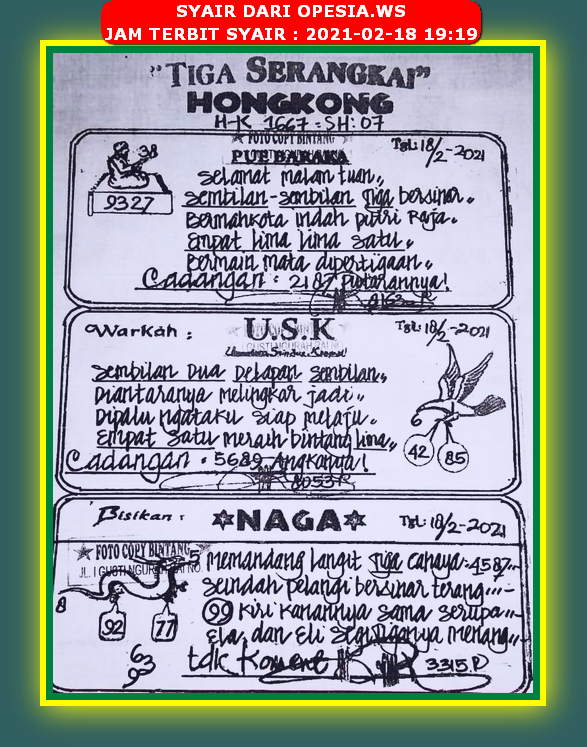 SYAIR DARI OPESIA.WS
JAM TERBIT SYAIR : 2021-02-18 19:19
"TIGA SERANGKAI"
HONGKONG
H-K 1667 = SH: 07
FOTO COPY BINTANG
PUE BARAKA
Tgl: 18/2-2021
38
9327
Selamat malam tuan,,
Sembilan-sembilan tiga bersinar,,
Bermahkota indah putri Raja.
Empat lima lima satu,,
Bermain mata dipertigaan,,
Cadangan : 2187 Putarannya!
Warkah :
U.S.K
Tgl: 18/2-2021
Sembilan Dua Delapan Sembilan,,
Diantaranya melingkar jadi,,
Dipalu ngataku siap melaju.
Empat satu meraih bintang lima,,
Cadangan : 5689 Angkanya!
8053 R
6
42
85
Bisikan :
NAGA
Tgl: 18/2-2021
FOTO COPY BINTANG
5
8
92
77
63
9
Memandang langit tiga cahaya :4587,,
Seindah pelangi bersinar terang
99 kiri kanannya sama serupa
Ela, dan Eli segitiganya menang,,
tdk Koment
3315.P